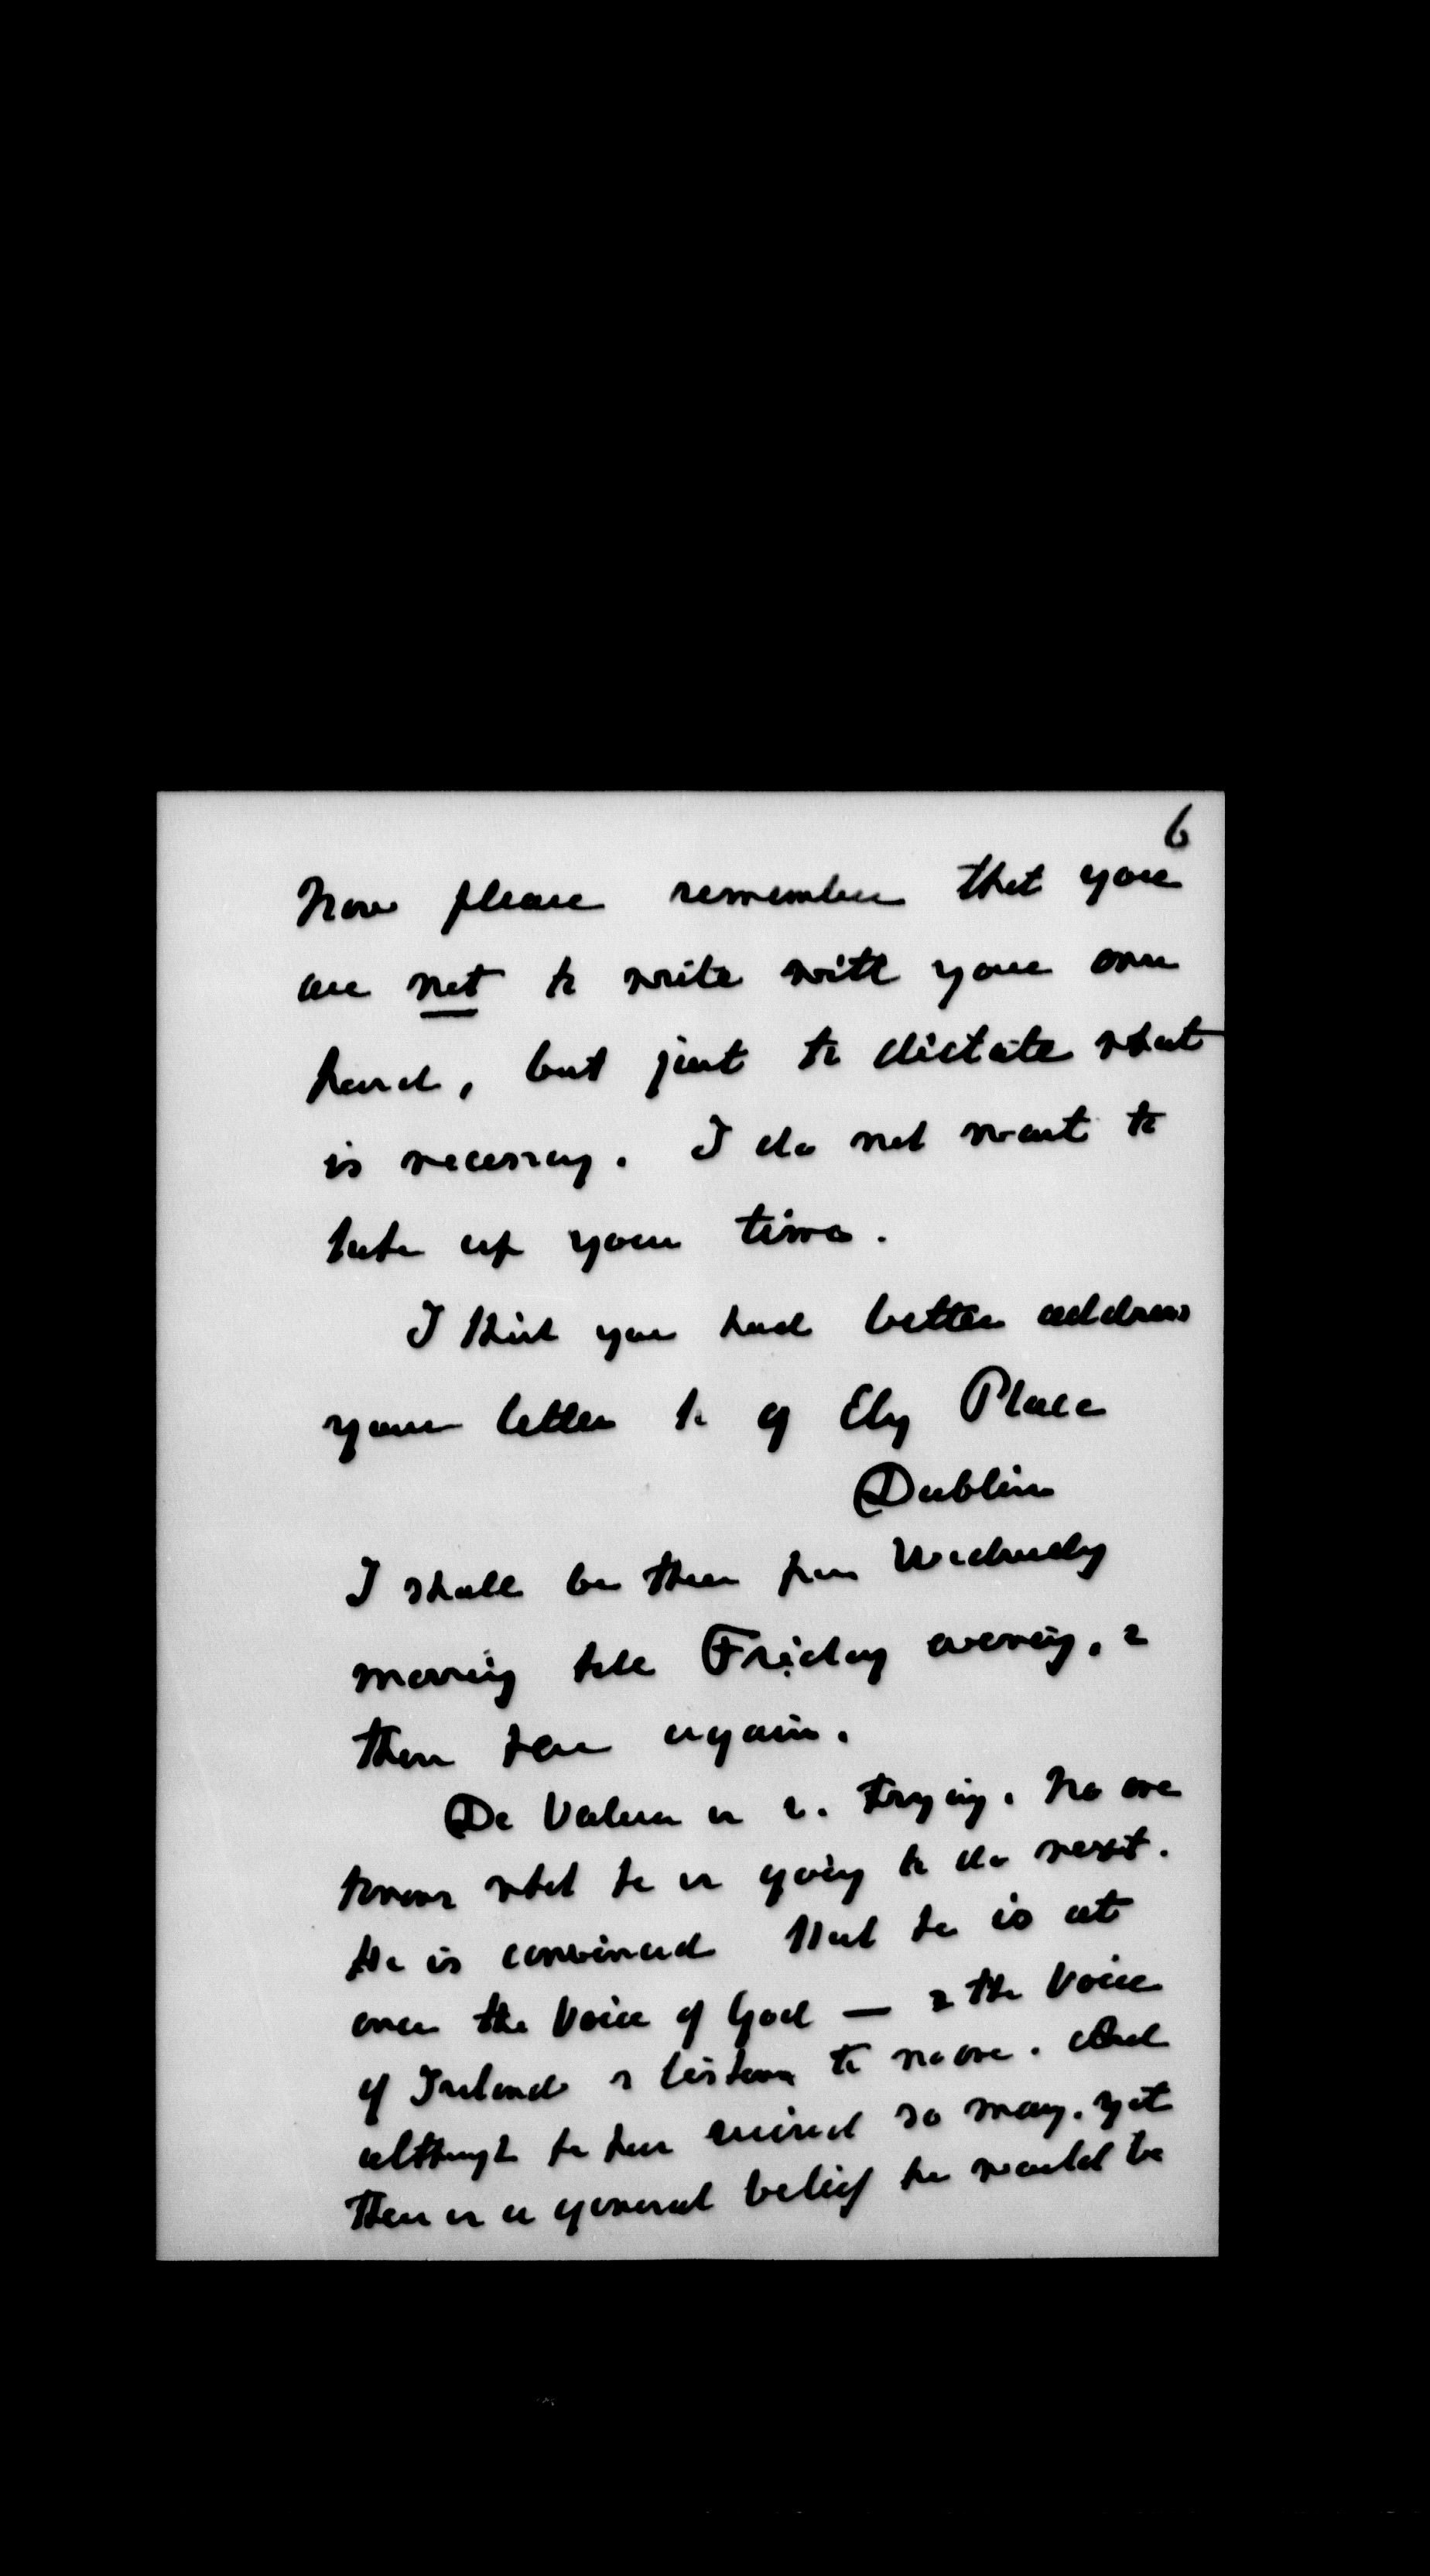 6
Now please remember that you
are not to write with your own
hand, but just to dictate what
is necessary. I do not want to
take up your time.
I think you had better address
your letter to 9 Ely Place
Dublin
I shall be there from Wednesday
morning till Friday evening, &
then here again.
De Valera is v. trying. No one
knows what he is going to do next.
He is convinced that he is at
once the Voice of God — & the Voice
of Ireland & listens to no one. And
although he has ruined so many. yet
there is a general belief he would be